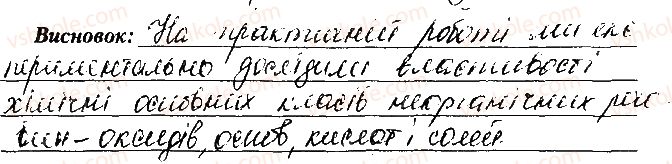 Висновок: На практичній роботі ми екс
периментально дослідили властивості
хімічні основних класів неорганічних реч
вин - оксидів, основ, кислот і солей.